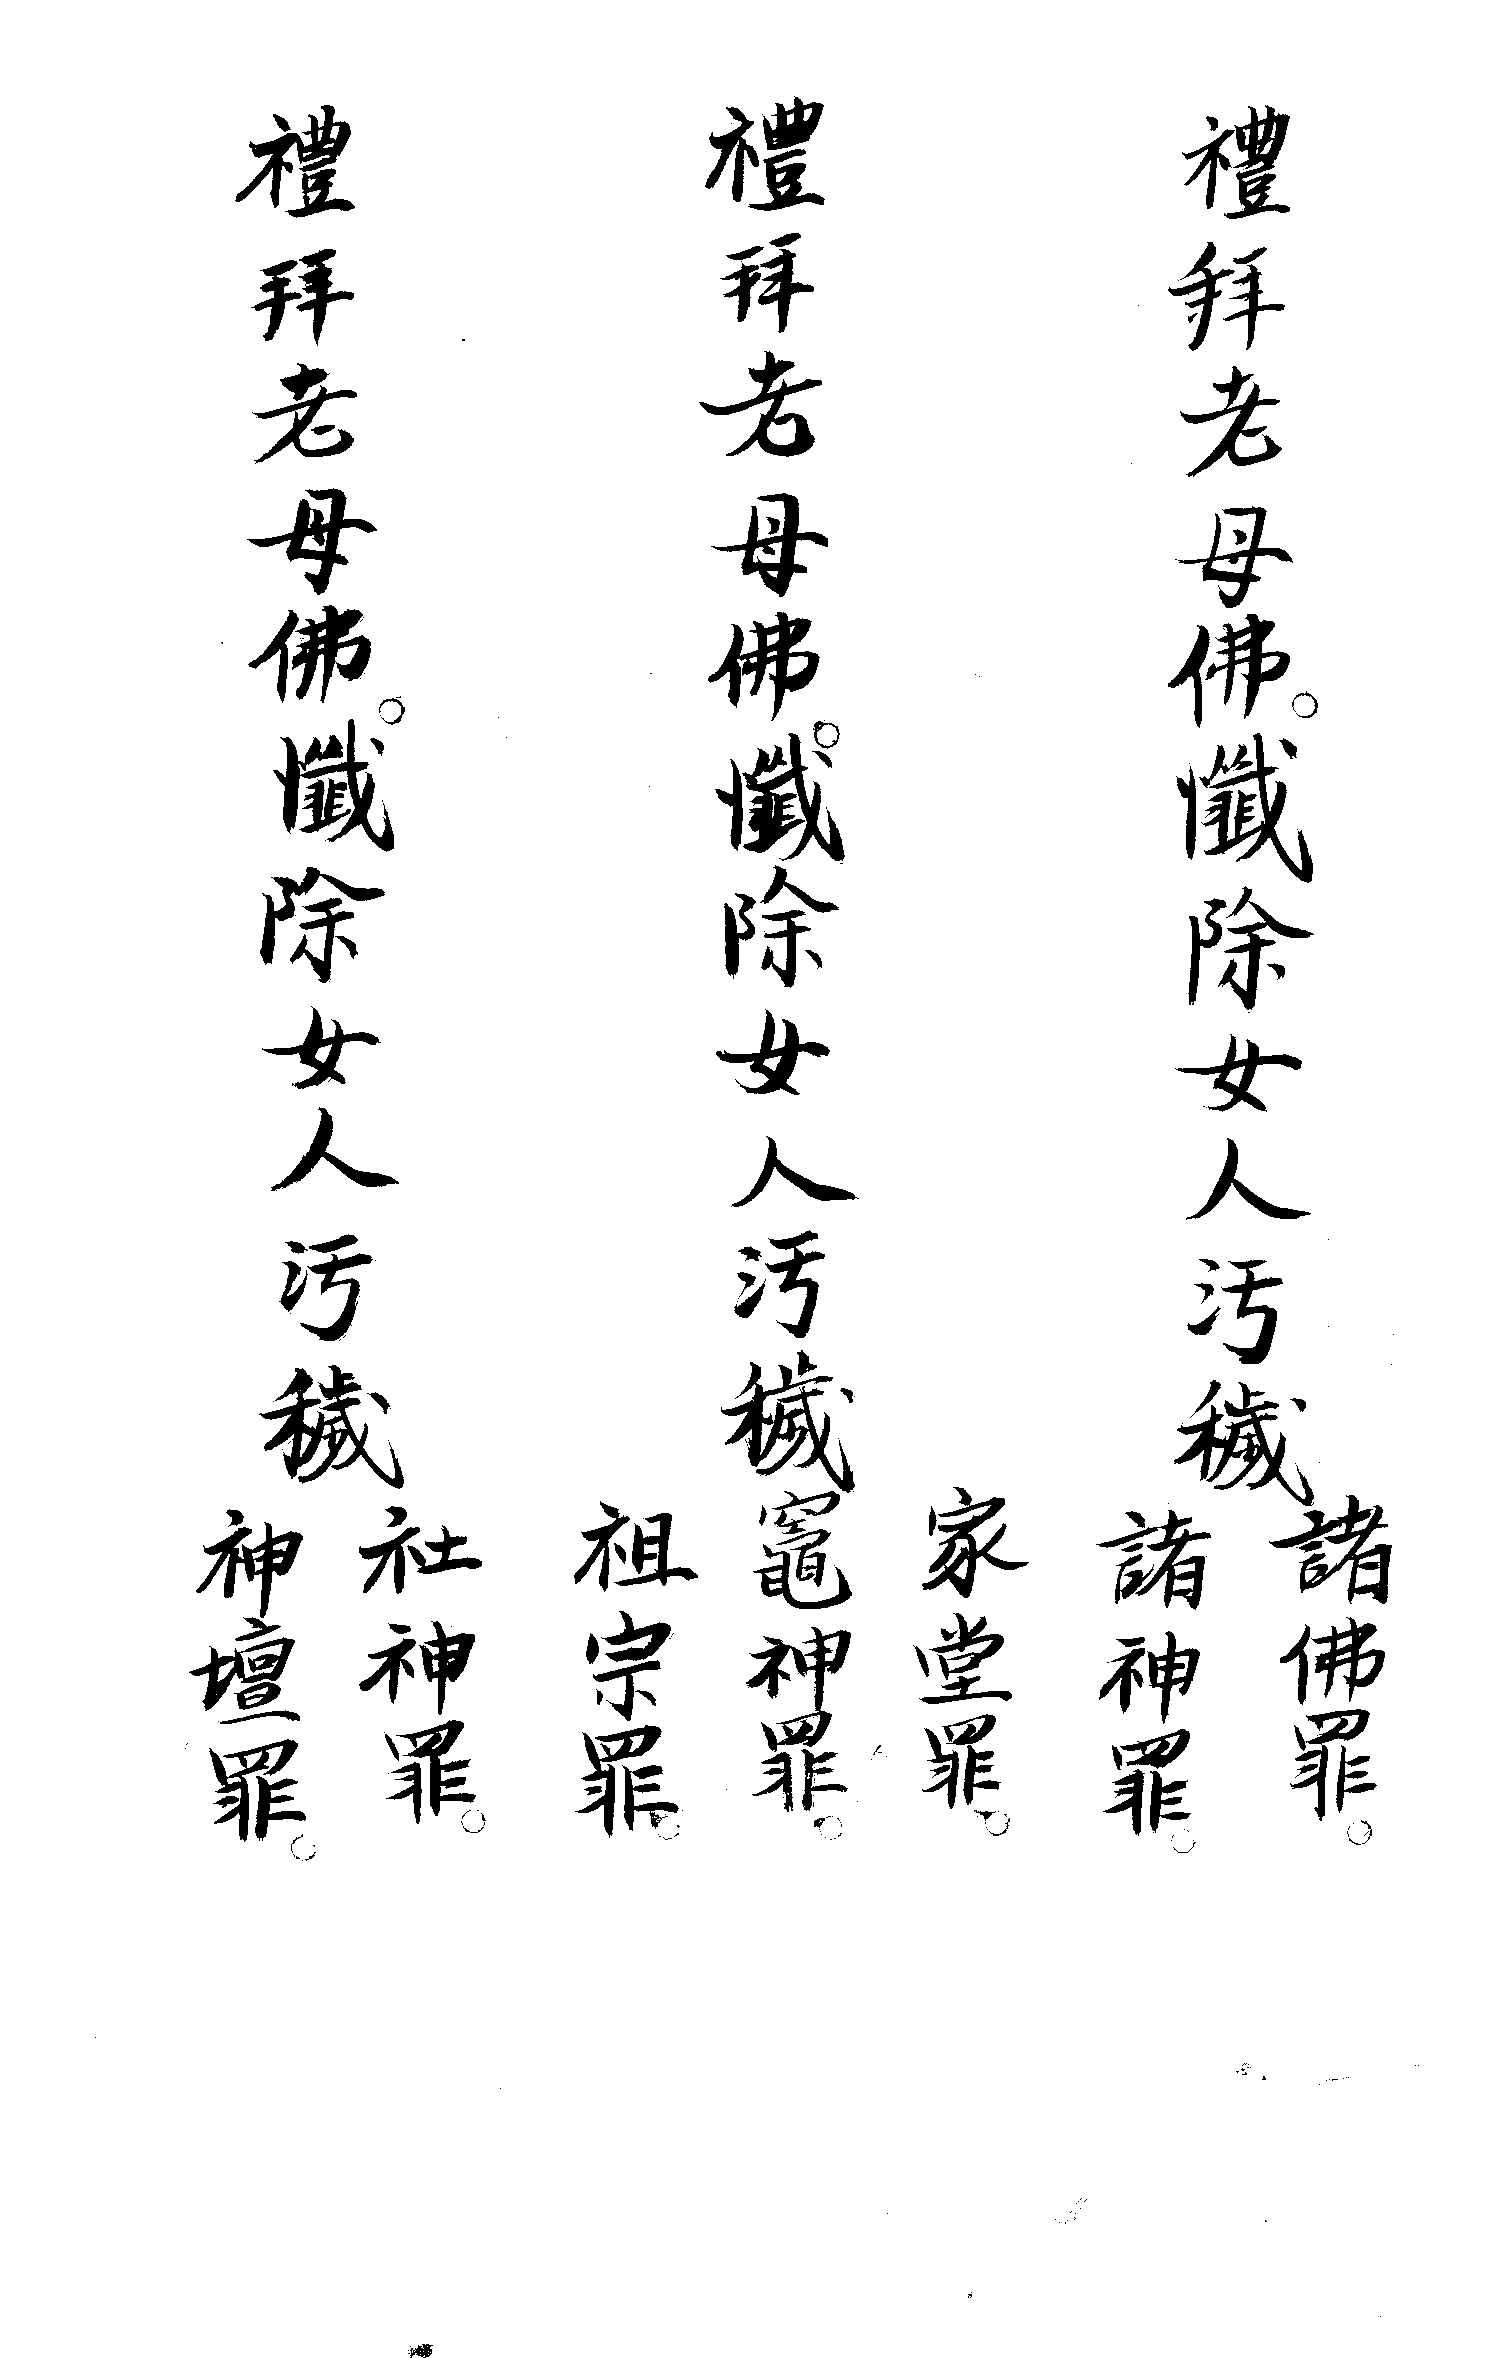 禮拜老母佛。懺除女人汚穢
諸佛罪。
諸神罪。
禮拜老母佛。懺除女人汚穢
家堂罪。
竈神罪。
祖宗罪。
禮拜老母佛。懺除女人汚穢
社神罪。
神壇罪。